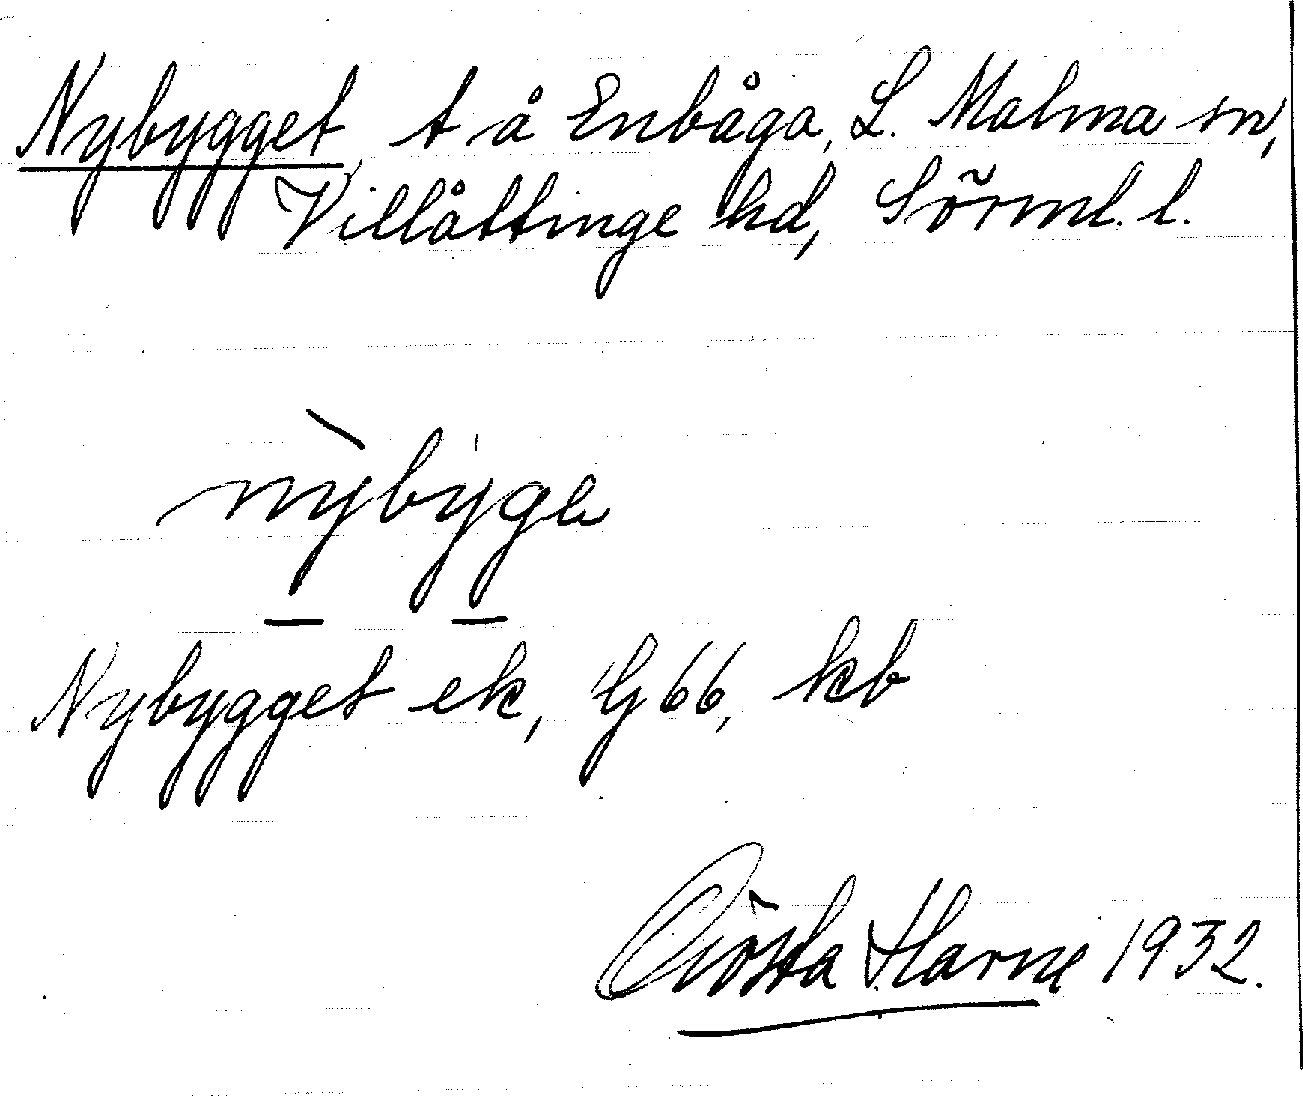 Nybygget, t å Enbåga, L. Malma sn,
Villåttinge hd, Sörml. l.
nỳbyge
Nybygget ek, Hj 66, kb
Gösta Harne 1932.